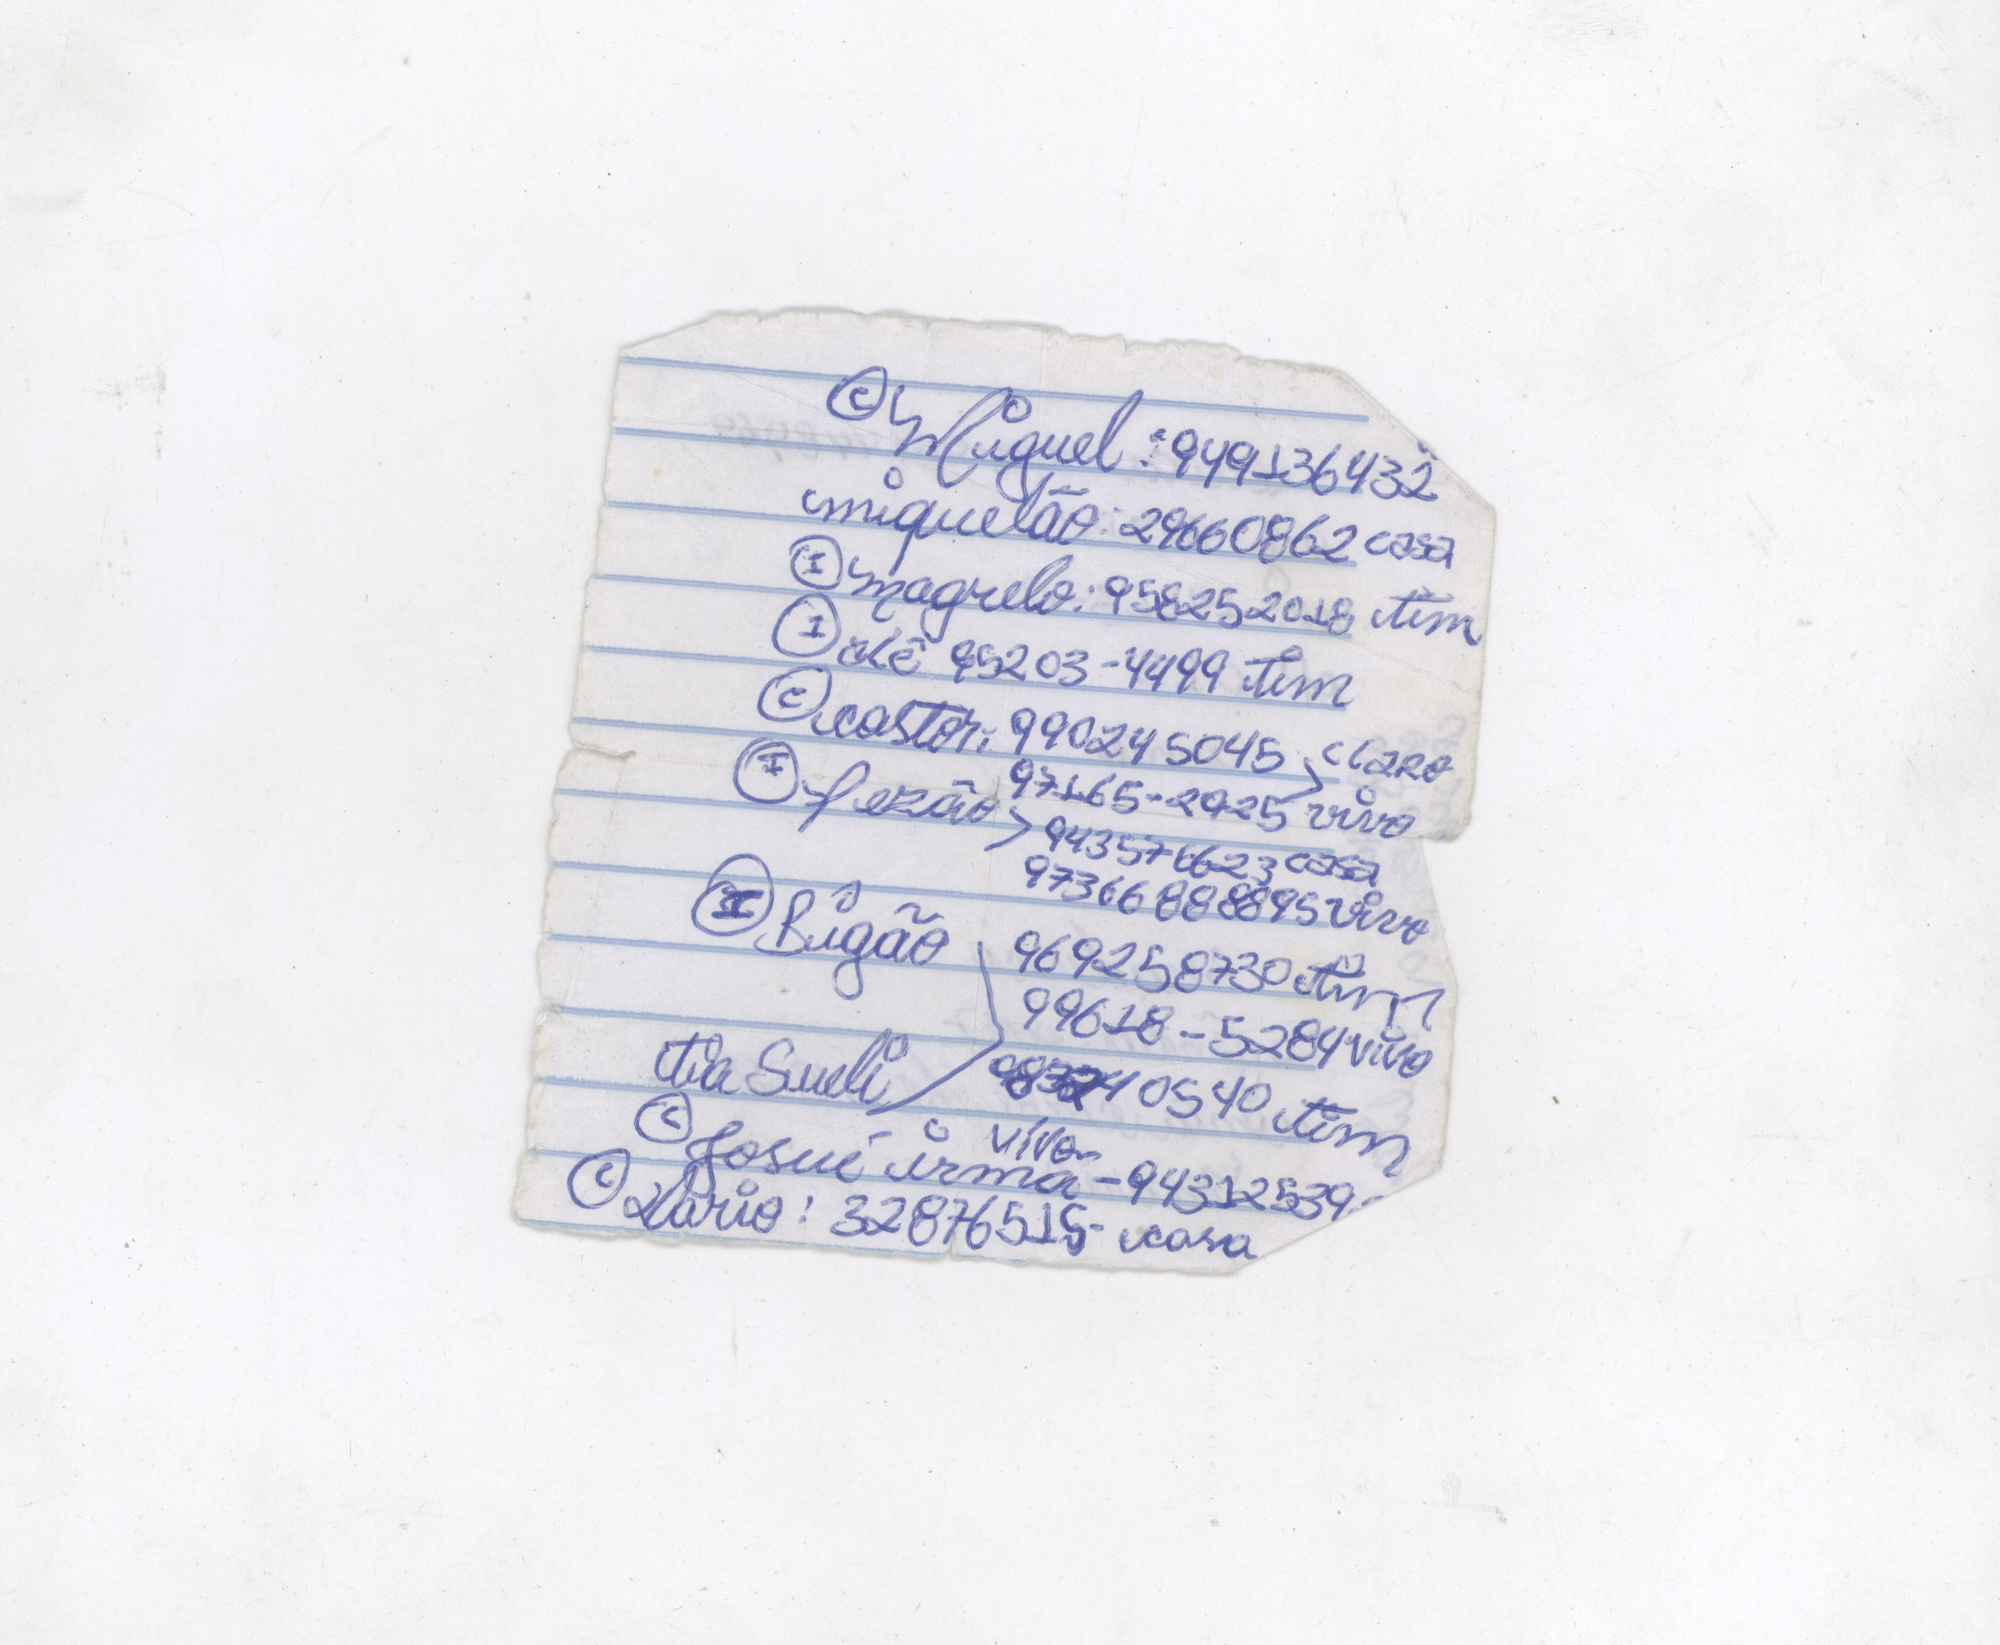 C Miguel: 949136432
miguelão: 29660862 casa
I magrelo: 958252018 tim
I alê 95203-4499 tim
C castor: 990245045 claro
97165-2925 vivo
I fezão 943576623 casa
973668888895 vivo
II Bigão 969258730 tim
99618-5284 vivo
tia Sueli 40540 tim
vivo
C Josué irmã - 94312539
C Dario: 32876515- casa